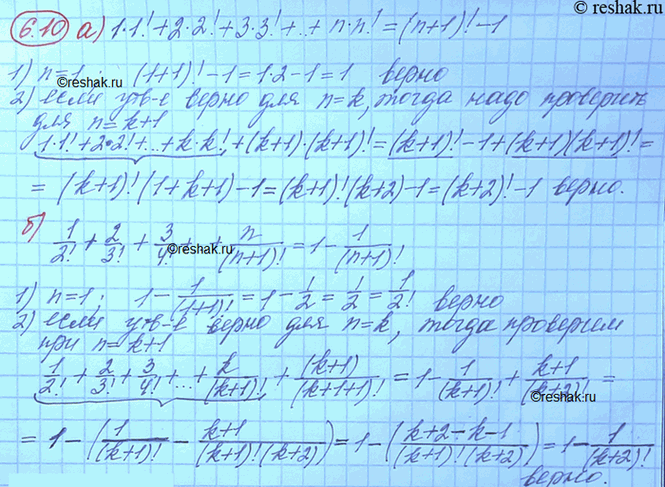 ©reshak.ru
6.10 а) 1·1! + 2·2! + 3·3! + .. + n·n! = (n+1)! - 1
1) n=1 ; (1+1)! - 1 = 1·2 - 1 = 1 верно
2) если утв-е верно для n=k, тогда надо проверить
для n=k+1
1·1! + 2·2! + .. + k·k! + (k+1)·(k+1)! = (k+1)! - 1 + (k+1)(k+1)! =
= (k+1)! (1+k+1) - 1 = (k+1)! (k+2) - 1 = (k+2)! - 1 верно.
б) 1/2! + 2/3! + 3/4! + .. + n/(n+1)! = 1 - 1/(n+1)!
©reshak.ru
1) n=1; 1 - 1/(1+1)! = 1 - 1/2 = 1/2 = 1/2! верно
2) если утв-е верно для n=k, тогда проверим
при n=k+1
1/2! + 2/3! + 3/4! + ... + k/(k+1)! + (k+1)/(k+1+1)! = 1 - 1/(k+1)! + k+1/(k+2)! =
©reshak.ru
= 1 - (1/(k+1)! - k+1/(k+1)!(k+2)) = 1 - (k+2-k-1/(k+1)!(k+2)) = 1 - 1/(k+2)!
верно.